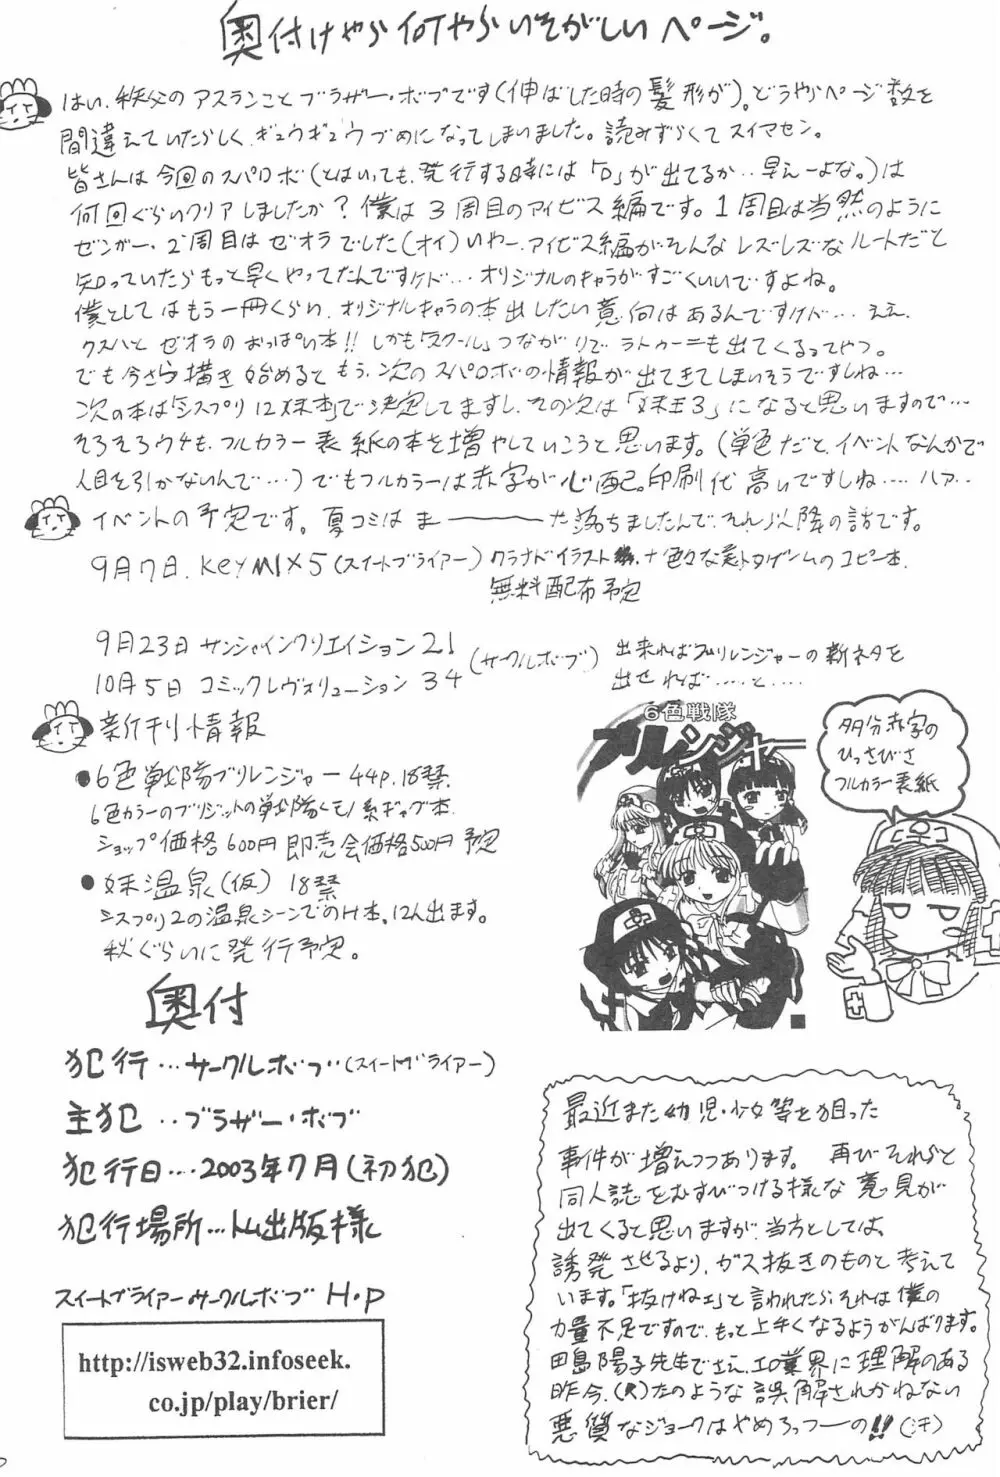 奥付けやら何やらいそがしいページ。
はい、秩父のアスランことブラザー・ボブです(伸ばした時の髪形が)。どうやらページ数を
間違えていたらしく、ギュウギュウづめになってしまいました。読みずらくてスイマセン。
皆さんは今回のスパロボ(とはいっても、発行する時には「D」が出てるか‥早えーよな。)は
何回ぐらいクリアしましたか?僕は3周目のアイビス編です。1周目は当然のように
ゼンガー、2周目はゼオラでした(オイ)いやー、アイビス編がそんなレズレズなルートだと
知っていたらもっと早くやってたんですけド…オリジナルのキャラがすごくいいですよね。
僕としてはもう一冊くらい、オリジナルキャラの本出したい意向はあるんですけド…ええ、
クスハとゼオラのおっぱい本!!しかも「スクール」つながりでラトゥーニも出てくるってやつ。
でも今さら描き始めるともう、次のスパロボの情報が出てきてしまいそうですしね…
次の本は「シスプリ12妹本」で決定してますし、その次は「妹王3」になると思いますので…
そろそろウチも、フルカラー表紙の本を増やしていこうと思います。(単色だと、イベントなんかで
人目を引かないんで…)でもフルカラーは赤字が心配。印刷代高いですしね……ハァ‥
イベントの予定です。夏コミはま――――た落ちましたんで、それ以降の話です。
9月7日、KeyMIX5(スイートブライアー)クラナドイラスト集、+色々な美少女ゲームのコピー本、
無料配布予定
9月23日 サンシャインクリエイション21
10月5日 コミックレヴォリューション34
(サークルボブ)
出来ればブリレンジャーの新ネタを
出せれば……と……
新刊情報
●6色戦隊ブリレンジャー 44P. 18禁
6色カラーのブリジットの戦隊モノ系ギャグ本、
ショップ価格600円 即売会価格500円予定
●妹温泉(仮) 18禁
シスプリ2の温泉シーンでのH本。12人出ます。
秋ぐらいに発行予定。
6色戦隊
ブリレンジャー
多分赤字の
ひっさびさ
フルカラー表紙
奥付
犯行…サークルボブ(スイートブライアー)
主犯‥ブラザー・ボブ
犯行日…2003年7月(初犯)
犯行場所…トム出版様
スイートブライアーサークルボブ H・P
http://isweb32.infoseek.
co.jp/play/brier/
最近また幼児・少女等を狙った
事件が増えつつあります。再びそれらと
同人誌をむすびつける様な意見が
出てくると思いますが、当方としては、
誘発させるより、ガス抜きのものと考えて
います。「抜けねェ」と言われたら、それは僕の
力量不足ですので、もっと上手くなるようがんばります。
田島陽子先生でさえ、エロ業界に理解のある
昨今、(火)たのような誤解されかねない
悪質なジョークはやめろっつーの!!(汗)